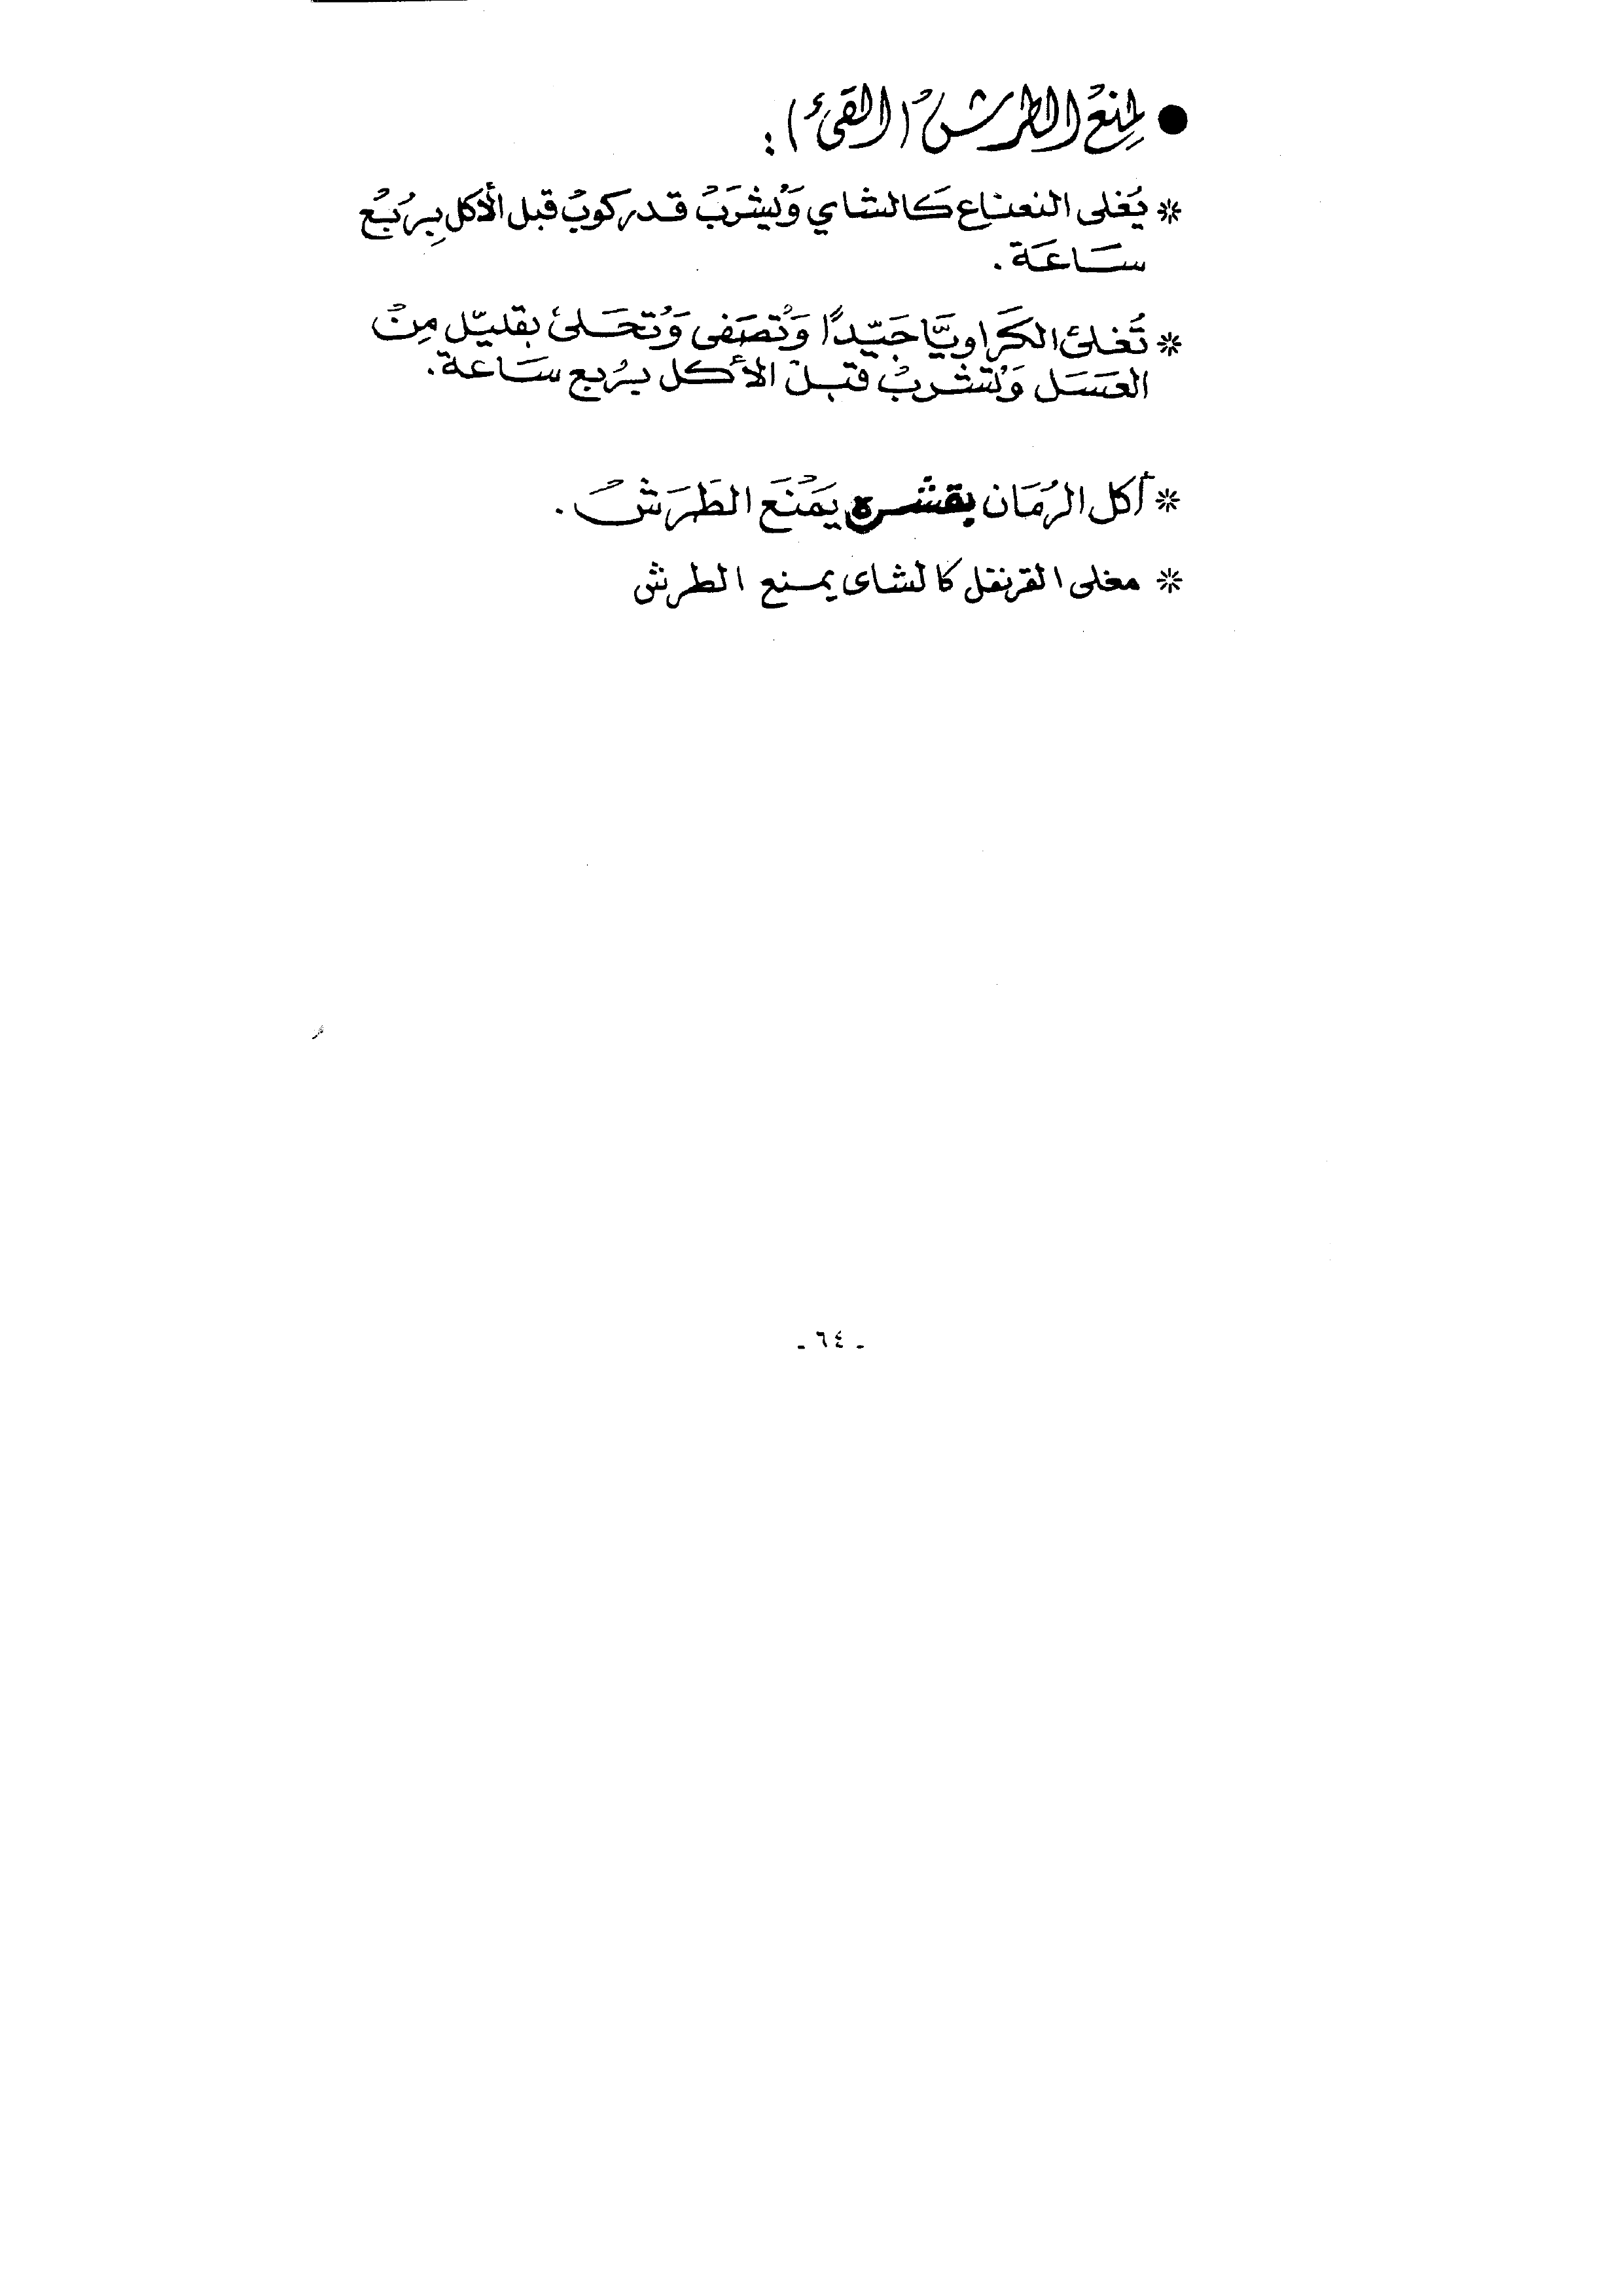 ● لمنع الطرش (القئ) :
* يُغلى النعناع كَالشاي وَيُشرَبْ قدر كوبْ قبل الأكل بِرُبْعْ
سَاعَة .
* تُغلىْ الكَراويَّا جَيّدًا وَتُصَفى وَتُحَلىْ بقليّل مِنْ
العَسَل وَتُشربْ قبل الأكل برُبع سَاعة .
* أكل الرُمَان بقشره يَمْنَع الطَرَشْ .
* مغلى القرنفل كالشاى يمنع الطرش
- ٦٤ -